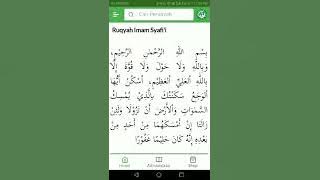 Cari Pencarian
Ruqyah Imam Syafi'i
بِسْمِ اللَّهِ الرَّحْمَنِ الرَّحِيْمِ،
وَبِاللَّهِ وَلَا حَوْلَ وَلَا قُوَّةَ إِلَّا
بِاللَّهِ الْعَلِيِّ الْعَظِيْمِ، اُسْكُنْ أَيُّهَا
الْوَجَعُ سَكَّنْتُكَ بِالَّذِيْ يُمْسِكُ
السَّمَوَاتِ وَالْأَرْضَ أَنْ تَزُوْلَا وَلَئِنْ
زَالَتَا إِنْ أَمْسَكَهُمَا مِنْ أَحَدٍ مِنْ
بَعْدِهِ إِنَّهُ كَانَ حَلِيْمًا غَفُوْرًا
Home
Shop